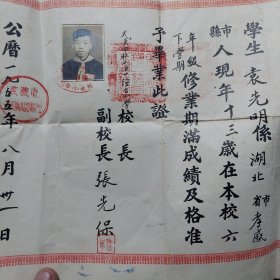 學生袁光明係湖北省市孝感
縣市人現年十三歲在本校六
年級下學期修業期滿成績及格准
予畢業此證
校長
副校長張先保
公曆一九五五年八月卅一日